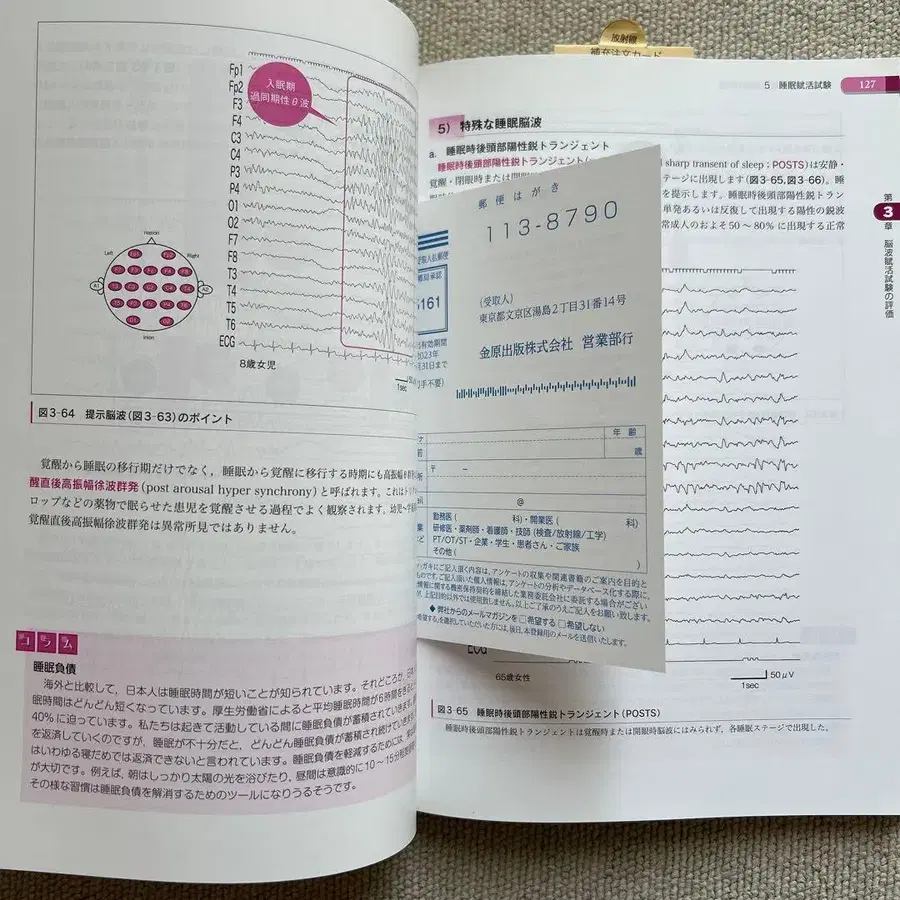 Fp1
Fp2
F3
F4
C3
C4
P3
P4
O1
O2
F7
F8
T3
T4
T5
T6
ECG
入眠期
過同期性θ波
nasion
Left
Right
A1
A2
inion
8歳女児
1sec
50μ
図3-64 提示脳波(図3-63)のポイント
覚醒から睡眠の移行期だけでなく，睡眠から覚醒に移行する時期にも高振幅
醒直後高振幅徐波群発(post arousal hyper synchrony)と呼ばれます。これは
ロップなどの薬物で眠らせた患児を覚醒させる過程でよく観察されます。幼児〜学
覚醒直後高振幅徐波群発は異常所見ではありません。
コラム
睡眠負債
海外と比較して，日本人は睡眠時間が短いことが知られています。それどころか，日本人
眠時間はどんどん短くなっています。厚生労働省によると平均睡眠時間が6時間を
40%に迫っています。私たちは起きて活動している間に睡眠負債が蓄積されていきます。
を返済していくのですが，睡眠が不十分だと，どんどん睡眠負債が蓄積され続けていきます。
はいわゆる寝だめでは返済できないと言われています。睡眠負債を軽減するためには，
が大切です。例えば，朝はしっかり太陽の光を浴びたり，昼間は意識的に10〜15分
その様な習慣は睡眠負債を解消するためのツールになりうるそうです。
放射線
補充注文カード
5 睡眠賦活試験
127
5) 特殊な睡眠脳波
a. 睡眠時後頭部陽性鋭トランジェント
睡眠時後頭部陽性鋭トランジェント(
l sharp transent of sleep；POSTS)は安静・
覚醒・閉眼時または
ステージに出現します(図3-65，図3-66)。睡
を提示します。睡眠時後頭部陽性鋭トラン
単発あるいは反復して出現する陽性の鋭波
常成人のおよそ50〜80%に出現する正常
第
3
章
脳波賦活試験の評価
郵便はがき
113-8790
取人払郵便
局承認
161
有効期間
2023年
月31日まで
手不要)
(受取人)
東京都文京区湯島2丁目31番14号
金原出版株式会社 営業部行
年 齢
歳
前
所
〒 −
ail
@
業
勤務医( 科)・開業医( 科)
研修医・薬剤師・看護師・技師(検査/放射線/工学)
など
PT/OT/ST・企業・学生・患者さん・ご家族
その他( )
ハガキにご記入頂く内容は，アンケートの収集や関連書籍のご案内を目的と
ものです。ご記入頂いた個人情報は，アンケートの分析やデータベース化する際に，
情報に関する機密保持契約を締結した業務委託会社に委託する場合がござい
が，上記目的以外では使用致しません。以上ご了承のうえご記入をお願い致します。
◆ 弊社からのメールマガジンを□希望する □希望しない
希望する」を選択していただいた方には，後日，本登録用のメールを送信いたします。
ECG
65歳女性
1sec
50μV
図3-65 睡眠時後頭部陽性鋭トランジェント(POSTS)
睡眠時後頭部陽性鋭トランジェントは覚醒時または開眼時脳波にはみられず，各睡眠ステージで出現した。